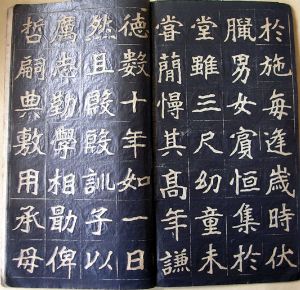 於施每逢歲時伏
臘男女賓恒集於
堂雖三尺幼童未
嘗蕳慢其髙年謙
德數十年如一日
然且殷殷訓子以
厲志勤學相勗俾
哲嗣典敷用承母